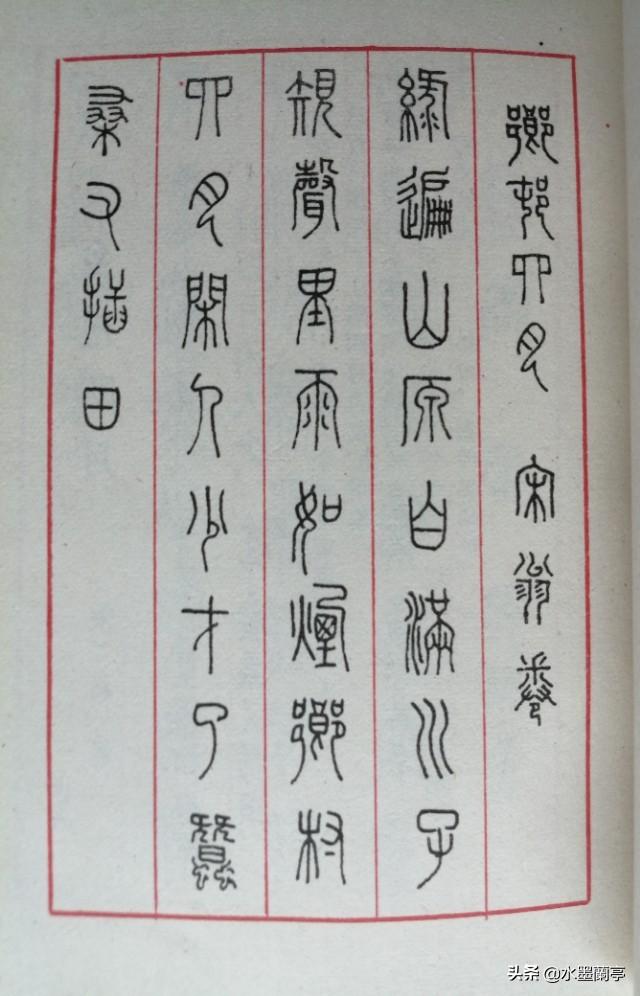 鄉邨四月 宋 翁卷
綠遍山原白滿川子
規聲里雨如煙鄉村
四月閑人少才了蠶
桑又插田
头条 @水墨蘭亭